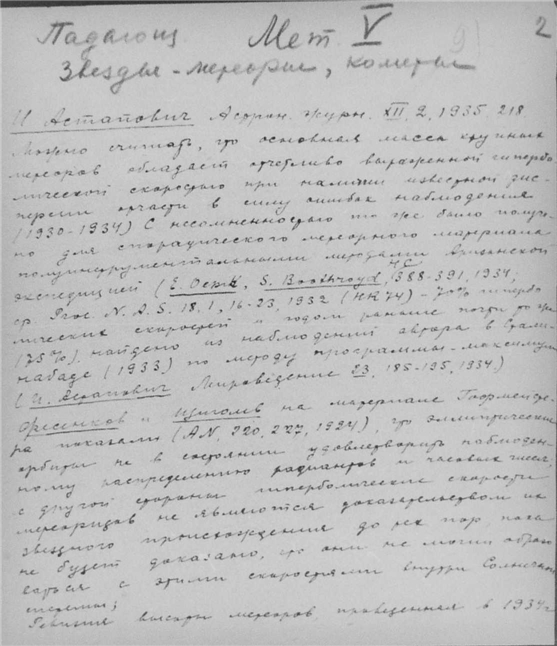 Мет. V 2
Звезды - метеоры, кометы
И. Астапович Астрон. журн. XII, 2, 1935, 218.
Можно считать, что основная масса крупных
метеоров обладает отчетливо выраженной гипербо-
лической скоростью при наличии известной дис-
персии отчасти в силу ошибок наблюдения
(1930-1934) С несомненностью то же было получе-
но для спорадического метеорного материала
полуинструментальными методами Аризонской
экспедицией (E. Öpik, S. Boothroyd, HC 388-391, 1934;
ср. Proc. N.A.S. 18, 1, 16-23, 1932 (HR 74) - 70% гипербо-
лических скоростей годом раньше почти то же
(75%) найдено из наблюдений автора в Стали-
набаде (1933) по методу программы-максимум
(И. Астапович Мироведение 23, 185-195, 1934.)
Фесенков и на материале Гофмейсте-
ра показали (AN, 220, 227, 1934), что эллиптические
орбиты не в состоянии удовлетворить наблюден-
ному распределению радиантов и часовых чисел,
с другой стороны гиперболические скорости
метеоридов не являются доказательством их
звездного происхождения до тех пор, пока
не будет доказано, что они не могли образо-
ваться с этими скоростями внутри Солнечной
системы;
Ревизия высоты метеоров, проведенная в 1934 г.